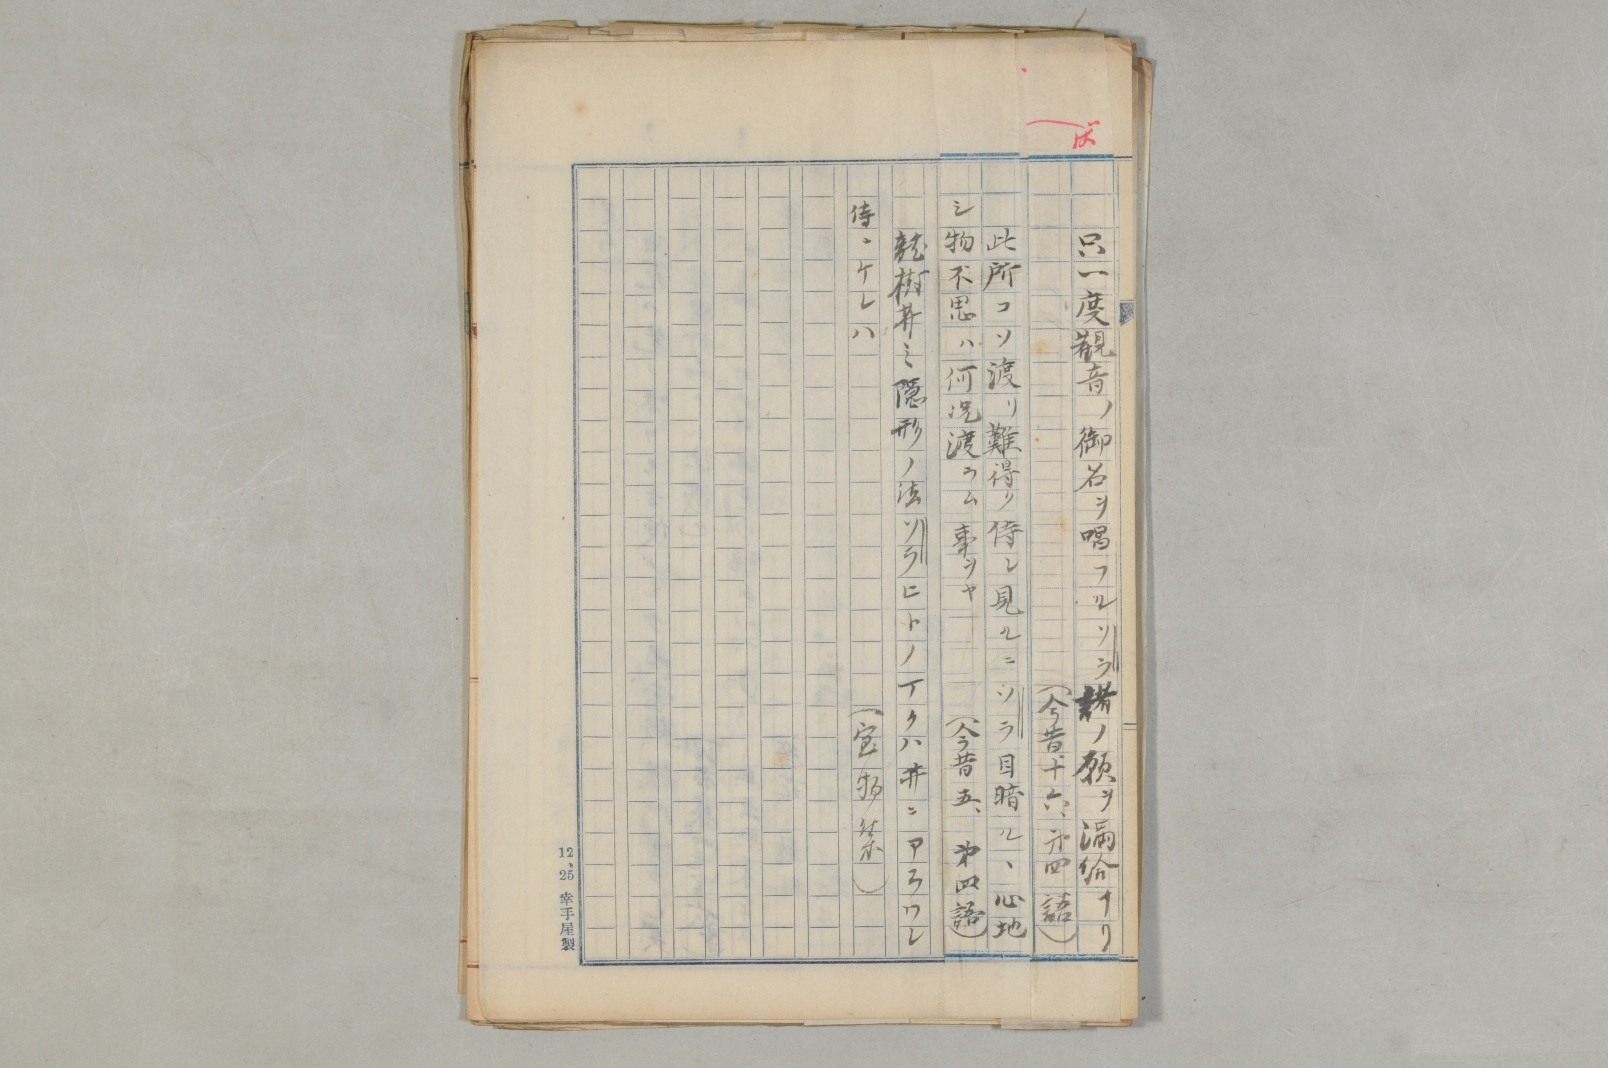 只一度觀音ノ御名ヲ唱フルソラ諸ノ願ヲ満給ナリ
(今昔十六、第四語)
此所コソ渡リ難得ク侍レ見ルニソラ目暗ル、心地
シ物不思ハ何况渡ラム事ヲヤ
(今昔五、第四語)
龍樹井ミ隠形ノ法ソラヒトノイクハ井ニアラワレ
侍ニケレハ
(宝物集)
12、25 幸手屋製